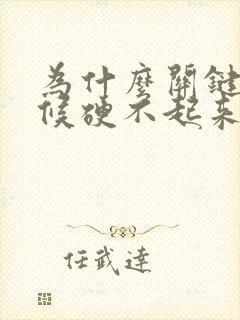 為什麼關鍵
候硬不起來
任武達